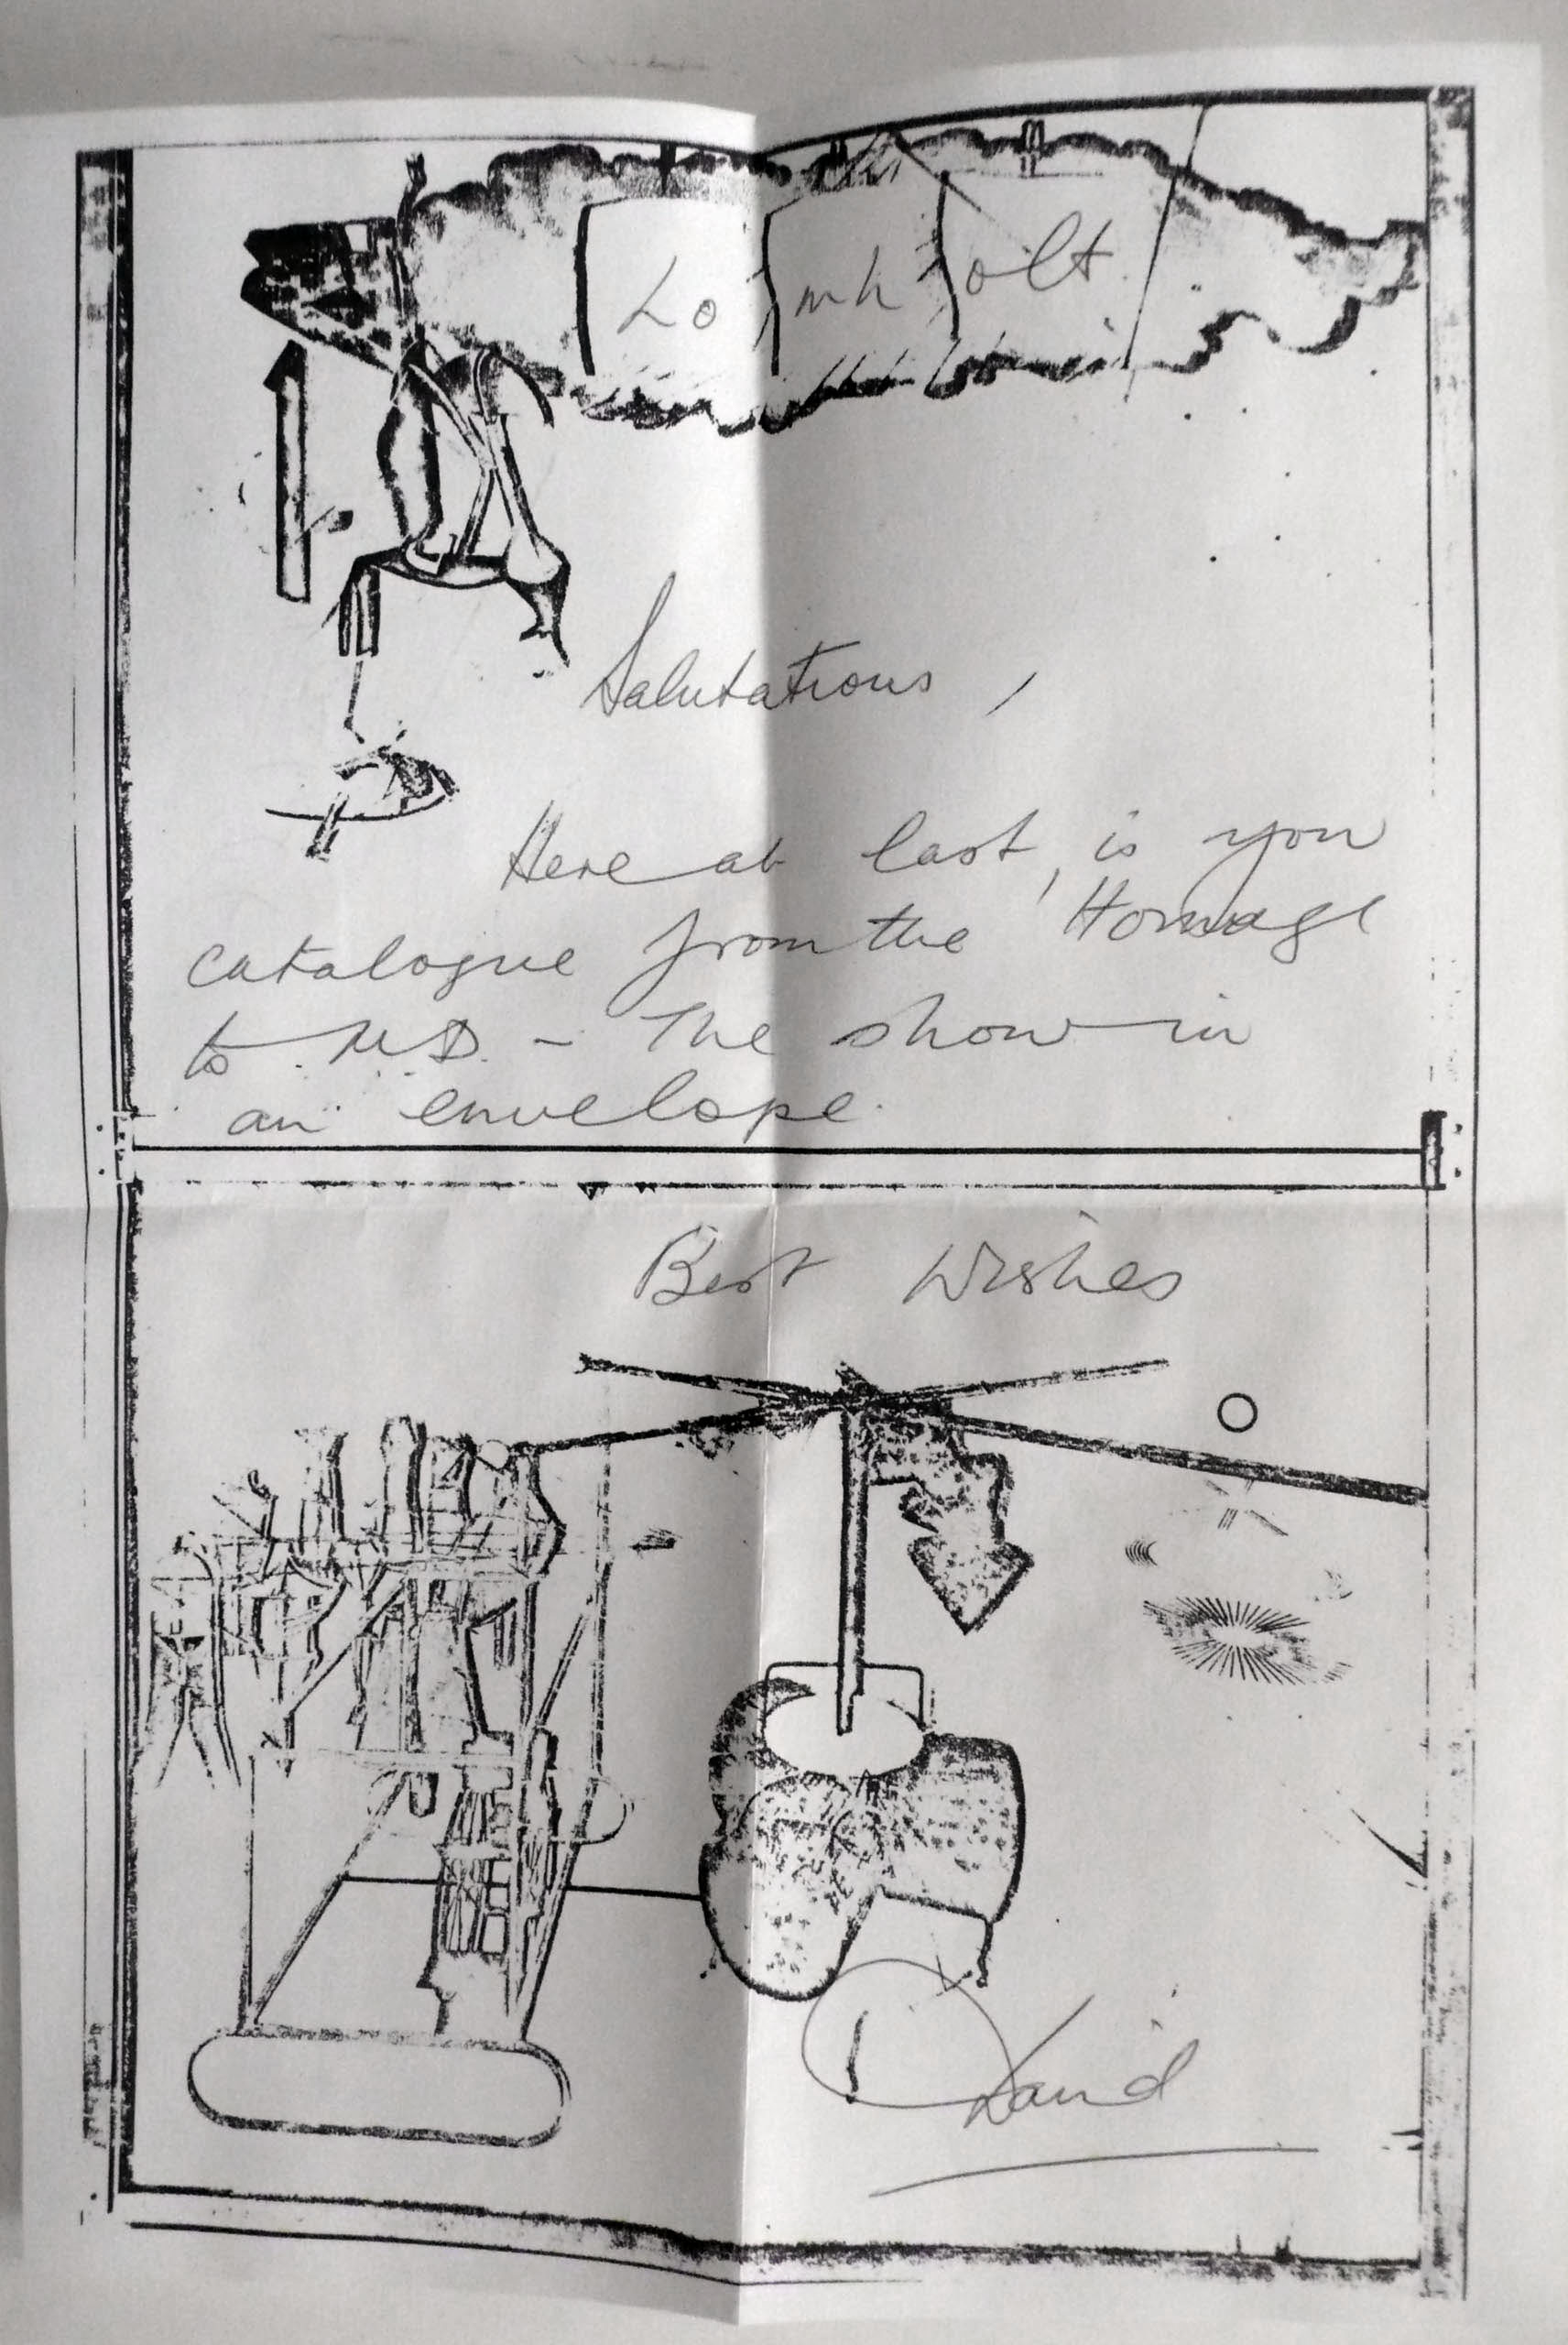 Lomholt
Salutations,
Here at last, is you
catalogue from the Homage
to M.D. - The show in
an envelope.
Best Wishes
David